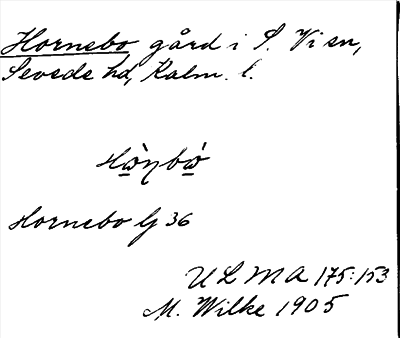 Hornebo gård i S. Vi sn,
Sevede hd, Kalm. l.
Hὼ̲ŋbώ̲
Hornebo Gj 36
ULMA 175:153
M. Wilke 1905